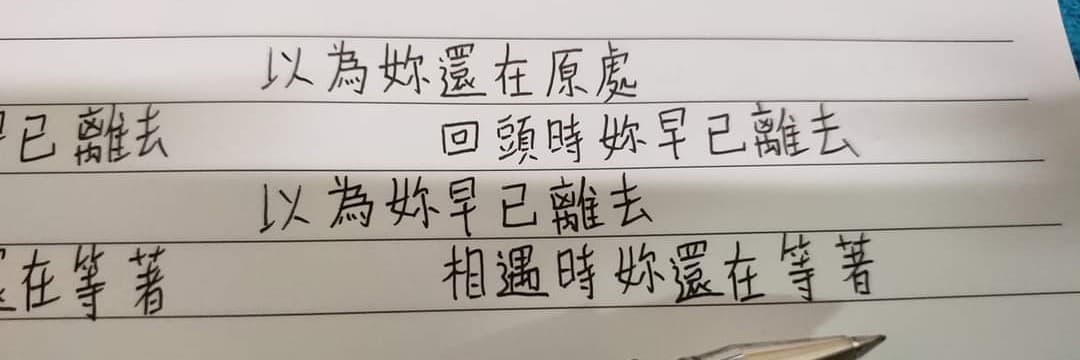 以為妳還在原處
已離去 回頭時妳早已離去
以為妳早已離去
在等著 相遇時妳還在等著